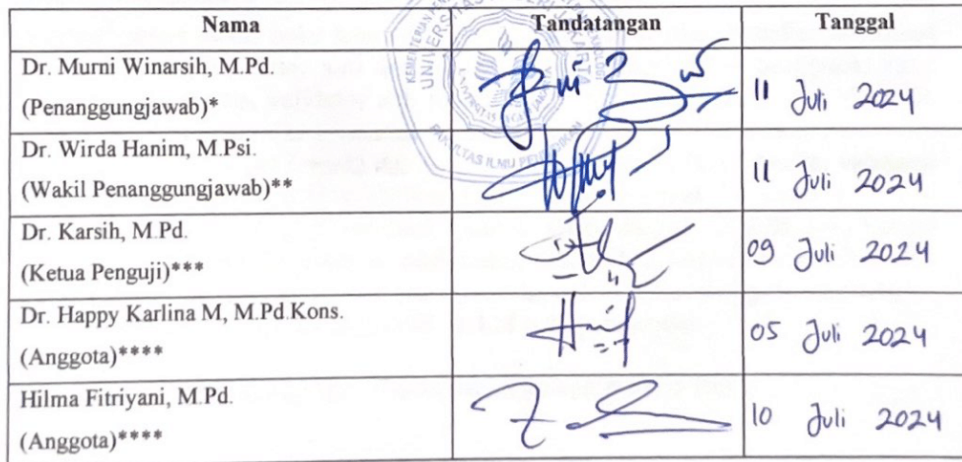 Nama Tandatangan Tanggal
Dr. Murni Winarsih, M.Pd.
(Penanggungjawab)* 11 Juli 2024
Dr. Wirda Hanim, M.Psi.
(Wakil Penanggungjawab)** 11 Juli 2024
Dr. Karsih, M.Pd.
(Ketua Penguji)*** 09 Juli 2024
Dr. Happy Karlina M, M.Pd.Kons.
(Anggota)**** 05 Juli 2024
Hilma Fitriyani, M.Pd.
(Anggota)**** 10 Juli 2024